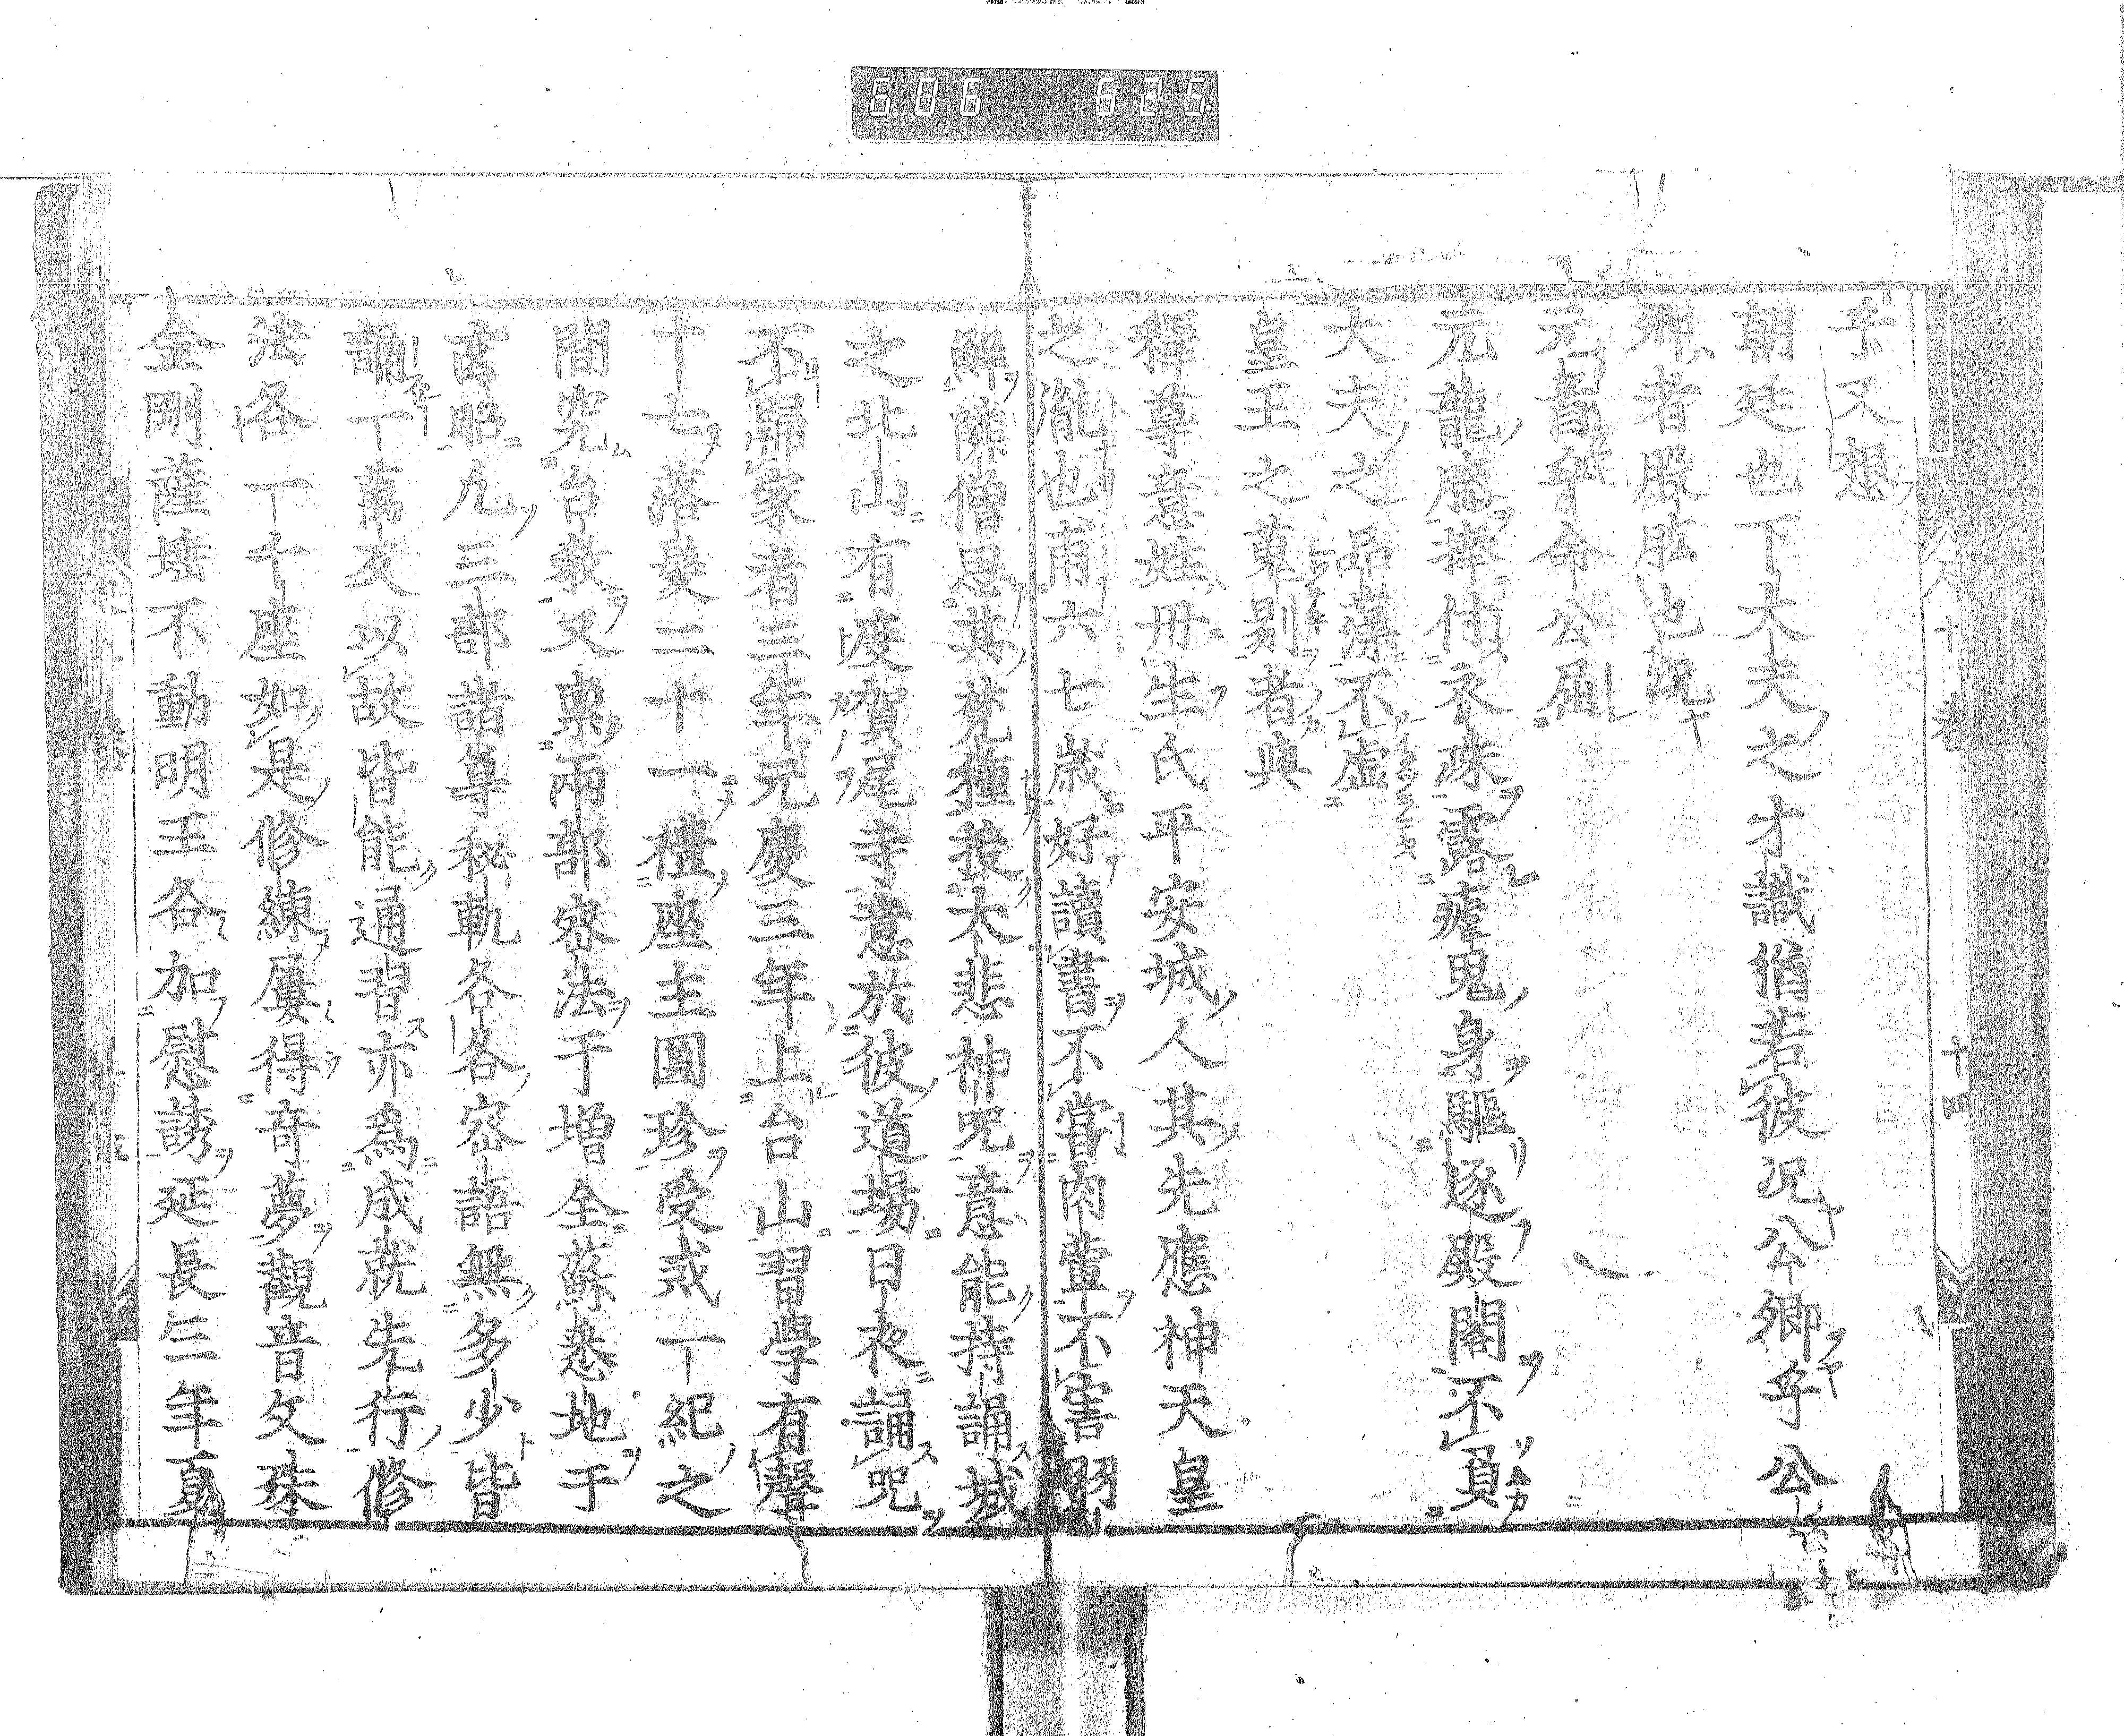 606 625
子又想
朝廷也下大夫之才識猶若彼況公卿乎公
卿者股肱也況
元首乎命公屈
元龍膺捧付衣珠露瘧鬼身驅逐殿閣不負
大夫之品藻不虛
皇王之蒐剔者與
釋尊意姓丹生氏平安城人其先應神天皇
之胤也甫六七歲好讀書不嘗肉葷不害
鱗僧思其梵種授大悲神呪意能持誦城
之北山有度賀尾寺意於彼道場日夜誦呪
不歸家者三年元慶三年上台山習學有聲
十七落髮二十一禮座主圓珍受戒一紀之
間究台教又稟兩部密法于增全蘇悉地于
玄昭凡三部諸尊秘軌各各密語無多少皆
誦一萬反以故皆能通習亦爲成就先行修
法各一千座如是修練屢得奇夢觀音文殊
金剛薩埵不動明王各加慰誘延長三年夏